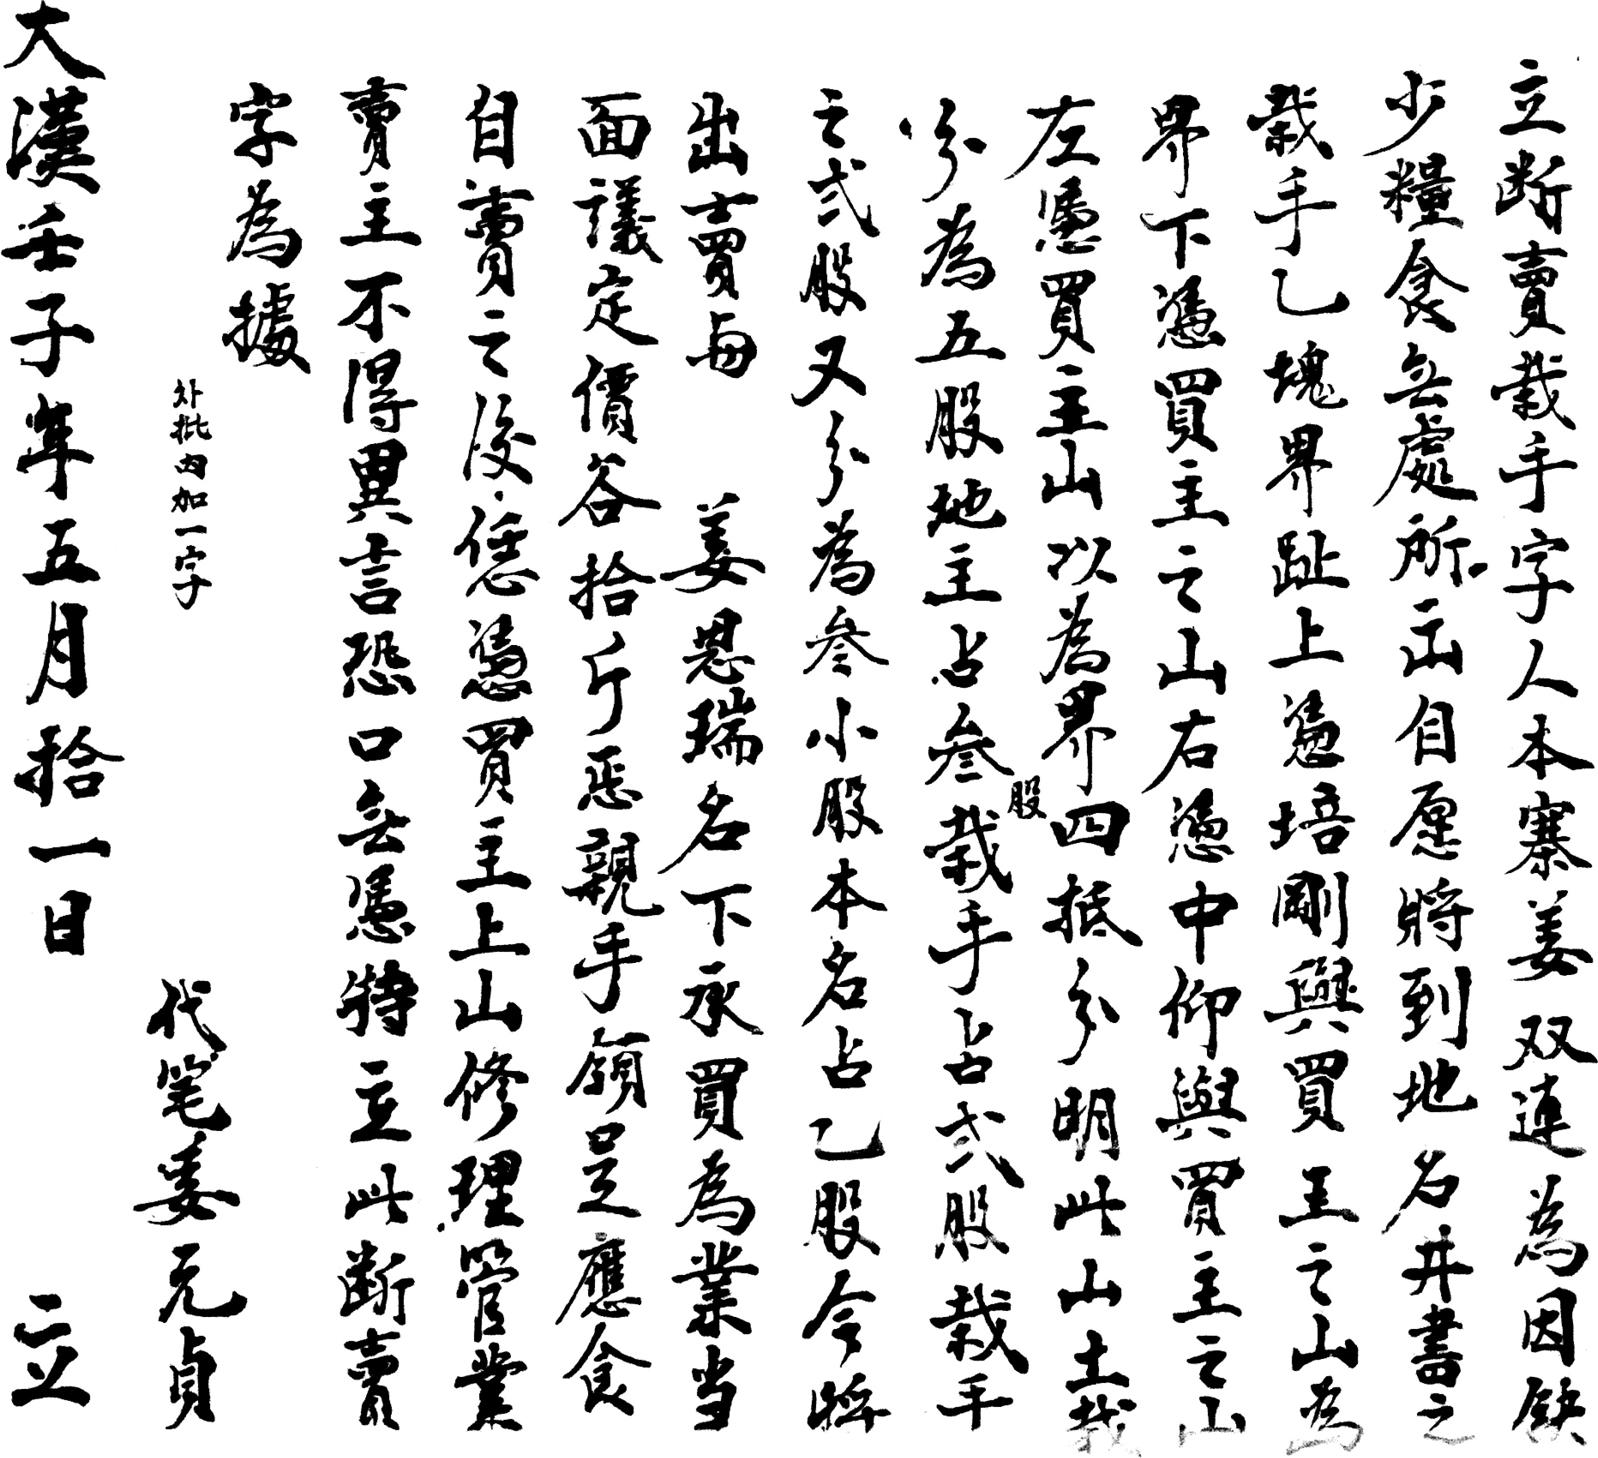 立断賣栽手字人本寨姜双連為因缺
少糧食無處所出自愿將到地名井書之
栽手乙塊界趾上憑培剛與買主之山為
界下憑買主之山右憑中仰與買主之山
左憑買主山以為界四抵分明此山土栽
分為五股地主占叁股栽手占弍股栽手
之弍股又分為叁小股本名占乙股今將
出賣与 姜恩瑞名下承買為業当
面議定價谷拾斤悉親手領足應食
自賣之後恁憑買主上山修理管業
賣主不得異言恐口無憑特立此断賣
字為據
外批内加一字
代笔姜元貞
大漢壬子年五月拾一日 立